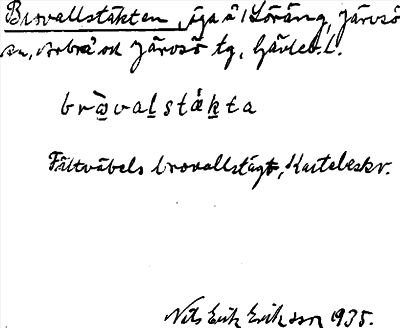 Brovallstäkten, äga å 1 Löräng, Järvsö
sn, Arbrå och Järvsö tg, Gävleb. l.
bro̲valståkta
Fältväbels brovallstägt, Kartebeskr.
Nils Erik Eriksson 1935.